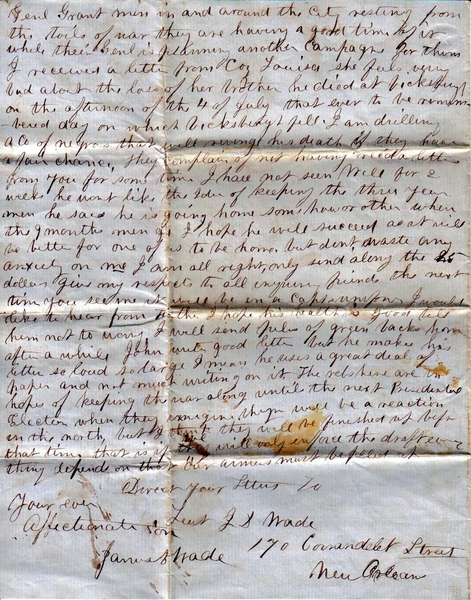 Genl Grant men in and around the City resting from
the toils of war they are having a good time of it
while their Genl is planning another Campagne for them
I received a letter from Coz Louisa she feels very
bad about the loss of her brother he died at Vicksburgh
on the afternoon of the 4 of July that ever to be remem
bered day on which Vicksburgh fell. I am drilling
a Co of negros that will revenge his death if they have
a fair chance. They complain of not having recd a letter
from you for some time I have not seen Will for 2
week he wont like the Idea of keeping the three year
men he said he is going home some how or other when
the 9 months men go I hope he will succeed as it will
be better for one of us to be home. but dont waste any
anxiety on me I am all right, only send along the 25
dollars Give my respects to all inquiring friends the next
time you see me it will be in a Capts uniform I would
like to hear from I hope his health is good tell
them not to worry I will send piles of green backs home
after a while John writes good letter but he makes his
letter so loud so large I mean he uses a great deal of
paper and not much writing on it. The rebs here are in
hopes of keeping the war along until the next Presidential
Election when they imagine their will be a reaction
in the north, but I think they will be finished up before
that time that is if the will only enforce the draft every
thing depends on that Our armies must be filled up
Direct your letters to
Your ever
Affectionate Son
Lieut J S Wade
James S Wade
170 Carrondelet Street
New Orleans